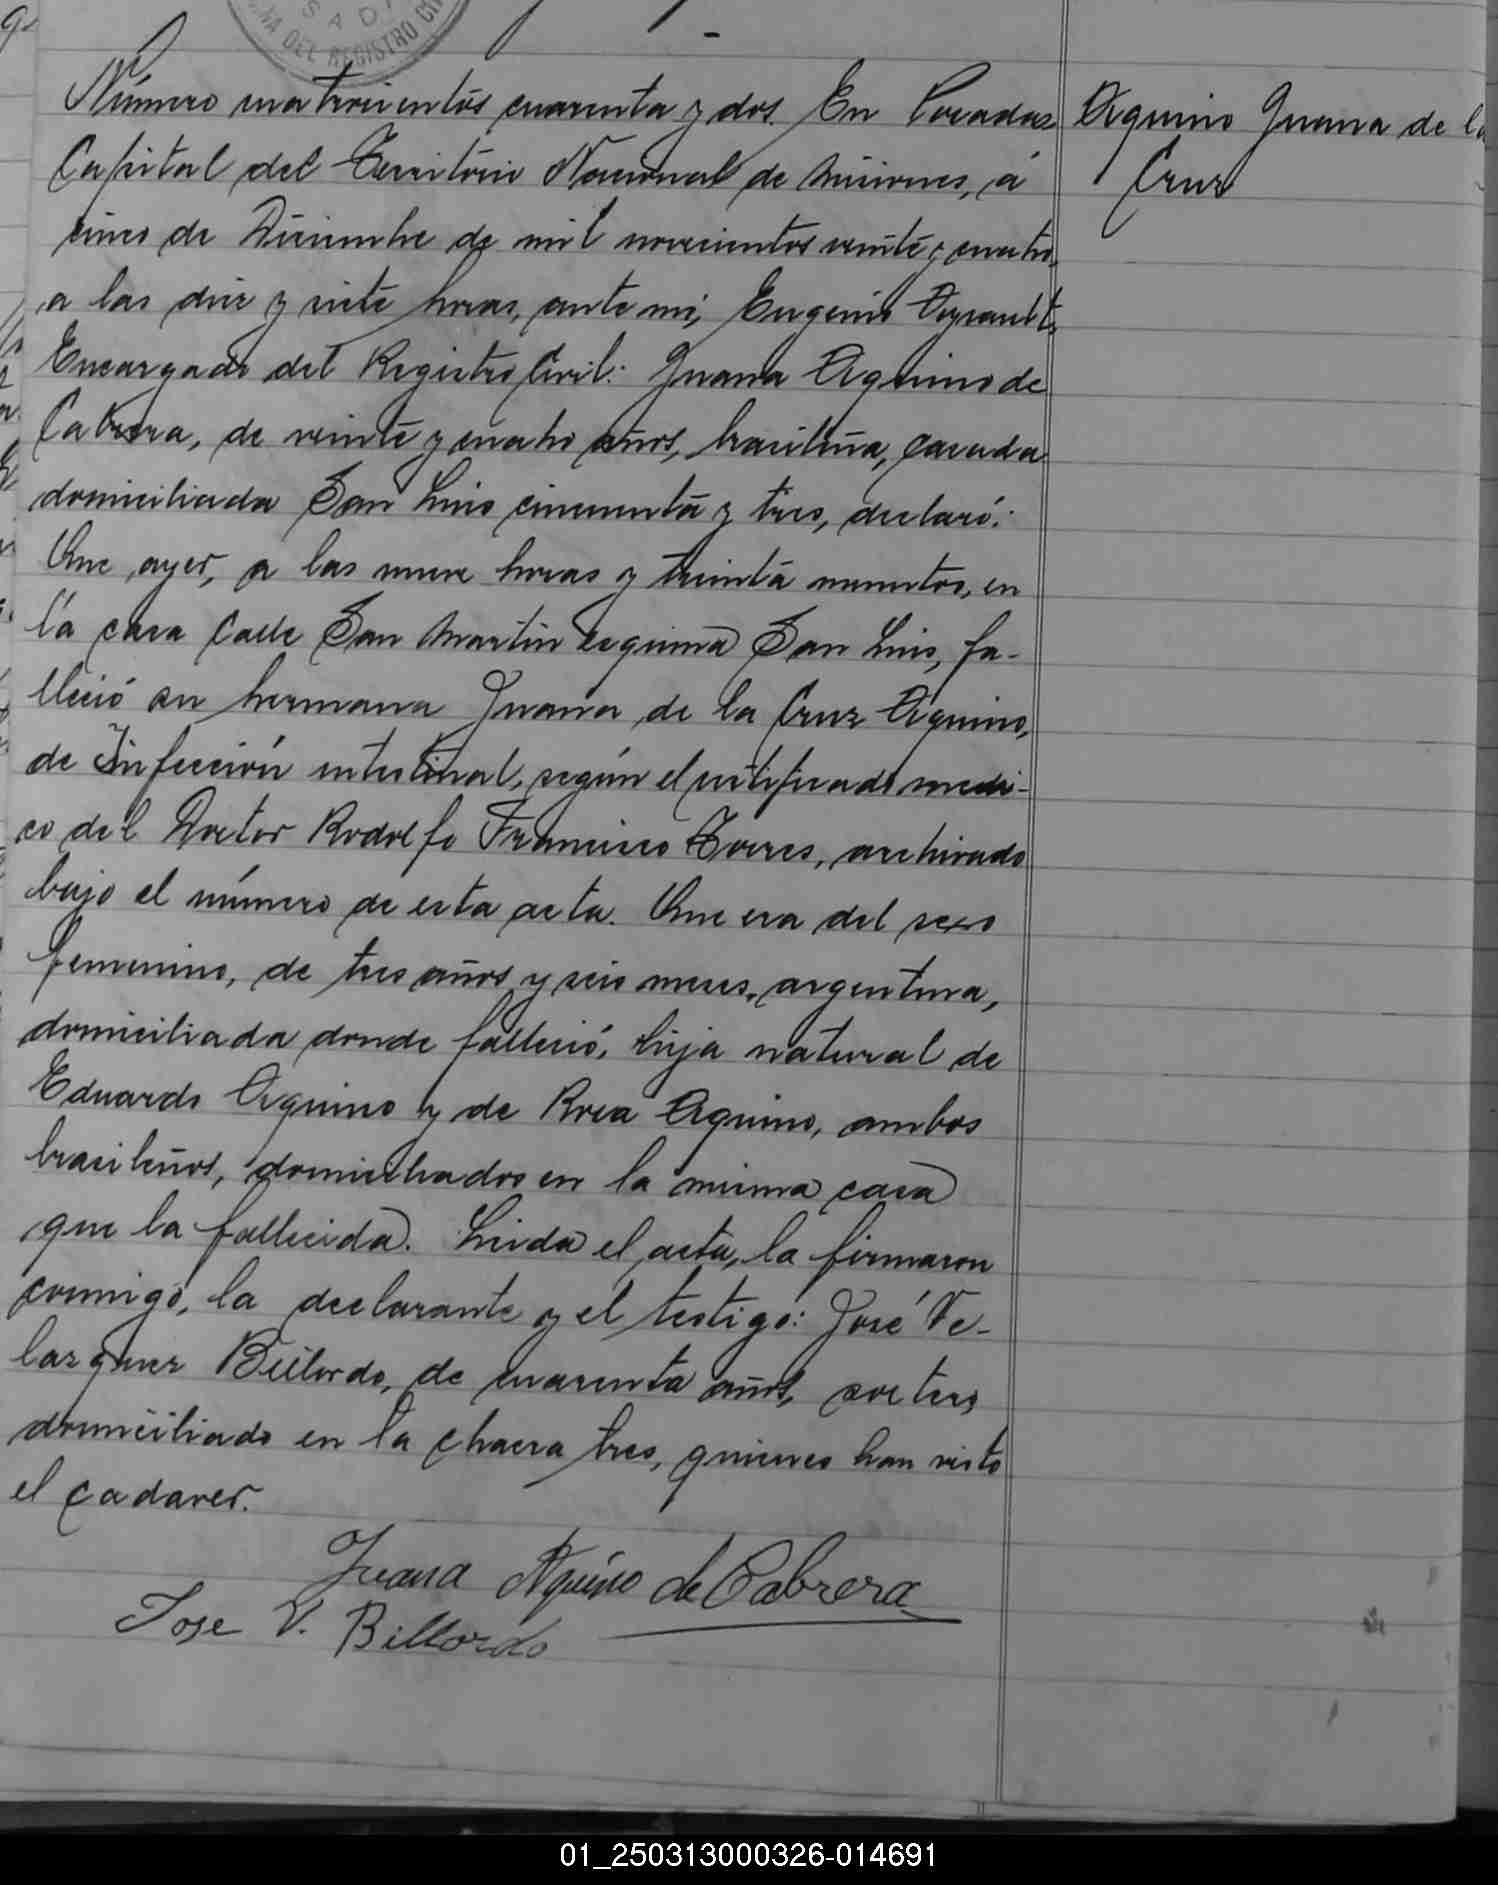 SAD
NA DEL REGISTRO CIV
Número cuatrocientos cuarenta y dos. En Posadas
Aquino Juana de la
Cruz
Capital del Território Nacional de Misiones, á
cinco de Diciembre de mil novecientos veinte y cuatro,
a las diez y siete horas, ante mi, Eugenio
Encargado del Registro Civil: Juana Aquino de
Cabrera, de veinte y cuatro años, brasileña, casada
domiciliada San Luis cincuenta y tres, declaró:
Que ayer, a las nueve horas y treinta minutos, en
la casa calle San Martín esquina San Luis, fa-
lleció su hermana Juana de la Cruz Aquino,
de Infección intestinal, según el certificado medi-
co del Doctor Rodolfo Francisco Torres, archivado
bajo el número de esta acta. Que era del sexo
femenino, de tres años y seis meses, argentina,
domiciliada donde falleció, hija natural de
Eduardo Aquino y de Rosa Aquino, ambos
brasileños, domiciliados en la misma casa
que la fallecida. Leida el acta, la firmaron
conmigo, la declarante y el testigo: José Ve-
lazquez Billordo, de cuarenta años, soltero,
domiciliado en la chacra tres, quienes han visto
el cadaver.
Juana Aquino de Cabrera
Jose V. Billordo
01_250313000326-014691